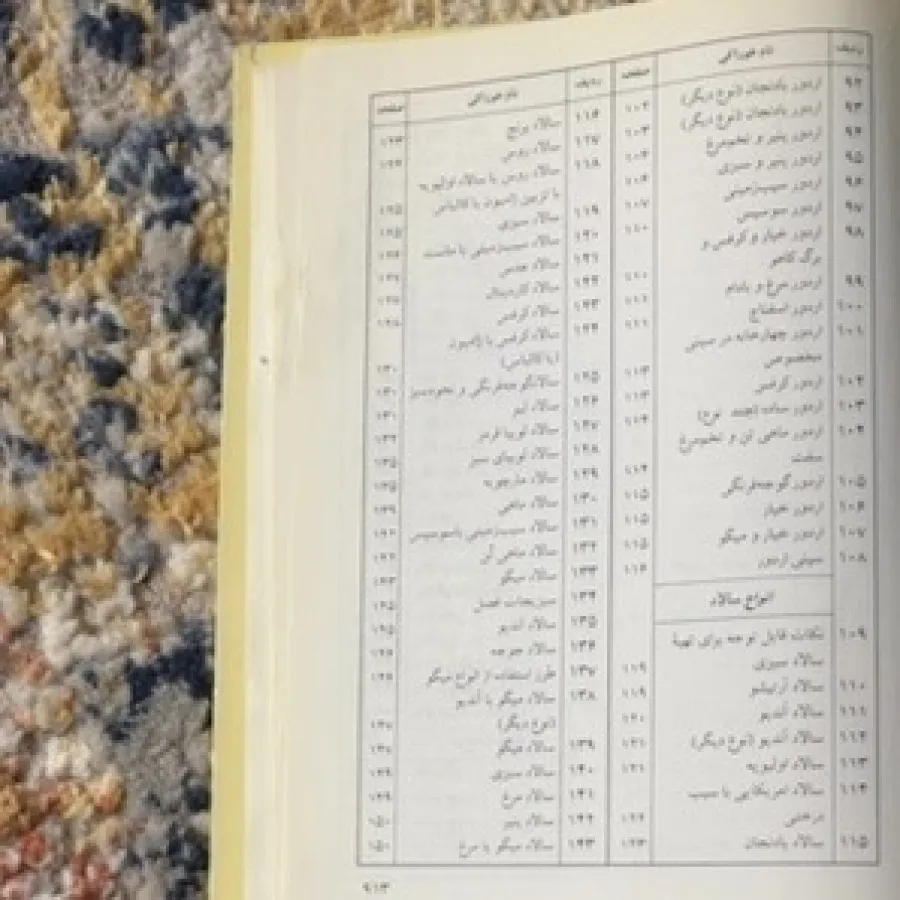 ردیف نام خوراکی صفحه
۹۲ اردور بادنجان (نوع دیگر) ۱۰۲
۹۳ اردور بادنجان (نوع دیگر) ۱۰۳
۹۴ اردور پنیر و تخم‌مرغ
۹۵ اردور پنیر و سبزی
۹۶ اردور سیب‌زمینی ۱۰۷
۹۷ اردور سوسیس ۱۱۰
۹۸ اردور خیار و کرفس و
برگ کاهو ۱۱۰
۹۹ اردور مرغ و بادام
۱۰۰ اردور اسفناج
۱۰۱ اردور چهارخانه در سینی
مخصوص ۱۱۳
۱۰۲ اردور کرفس ۱۱۳
۱۰۳ اردور ساده (چند نوع) ۱۱۴
۱۰۴ اردور ماهی تن و تخم‌مرغ
سفت ۱۱۴
۱۰۵ اردور گوجه‌فرنگی ۱۱۵
۱۰۶ اردور خیار ۱۱۵
۱۰۷ اردور خیار و میگو ۱۱۵
۱۰۸ سینی اردور ۱۱۶
انواع سالاد
۱۰۹ نکات قابل توجه برای تهیهٔ
سالاد سبزی ۱۱۹
۱۱۰ سالاد آرتیشو ۱۱۹
۱۱۱ سالاد آندیو ۱۲۰
۱۱۲ سالاد آندیو (نوع دیگر) ۱۲۱
۱۱۳ سالاد اولیویه ۱۲۱
۱۱۴ سالاد امریکایی با سیب
درختی ۱۲۲
۱۱۵ سالاد بادنجان ۱۲۳
ردیف نام خوراکی صفحه
۱۱۶ سالاد برنج ۱۲۳
۱۱۷ سالاد روس ۱۲۴
۱۱۸ سالاد روس یا سالاد اولیویه
با تزیین ژامبون یا کالباس ۱۲۵
۱۱۹ سالاد سبزی ۱۲۵
۱۲۰ سالاد سیب‌زمینی با ماست
۱۲۱ سالاد عدس
۱۲۲ سالاد کاردینال
۱۲۳ سالاد کرفس ۱۲۸
۱۲۴ سالاد کرفس با ژامبون
(یا کالباس) ۱۳۰
۱۲۵ سالاد گوجه‌فرنگی و نخودسبز ۱۳۰
۱۲۶ سالاد لبو ۱۳۱
۱۲۷ سالاد لوبیا قرمز
۱۲۸ سالاد لوبیای سبز ۱۳۵
۱۲۹ سالاد مارچوبه ۱۳۵
۱۳۰ سالاد ماهی ۱۳۹
۱۳۱ سالاد سیب‌زمینی باسوسیس
۱۳۲ سالاد ماهی آن
۱۳۳ سالاد میگو ۱۴۳
۱۳۴ سبزیجات فصل ۱۴۵
۱۳۵ سالاد آندیو ۱۴۵
۱۳۶ سالاد جوجه
۱۳۷ طرز استفاده از انواع میگو
۱۳۸ سالاد میگو با آندیو
(نوع دیگر) ۱۴۷
۱۳۹ سالاد میگو
۱۴۰ سالاد سبزی ۱۴۹
۱۴۱ سالاد مرغ ۱۴۹
۱۴۲ سالاد پنیر ۱۵۰
۱۴۳ سالاد میگو با مرغ ۱۵۰
۹۱۳